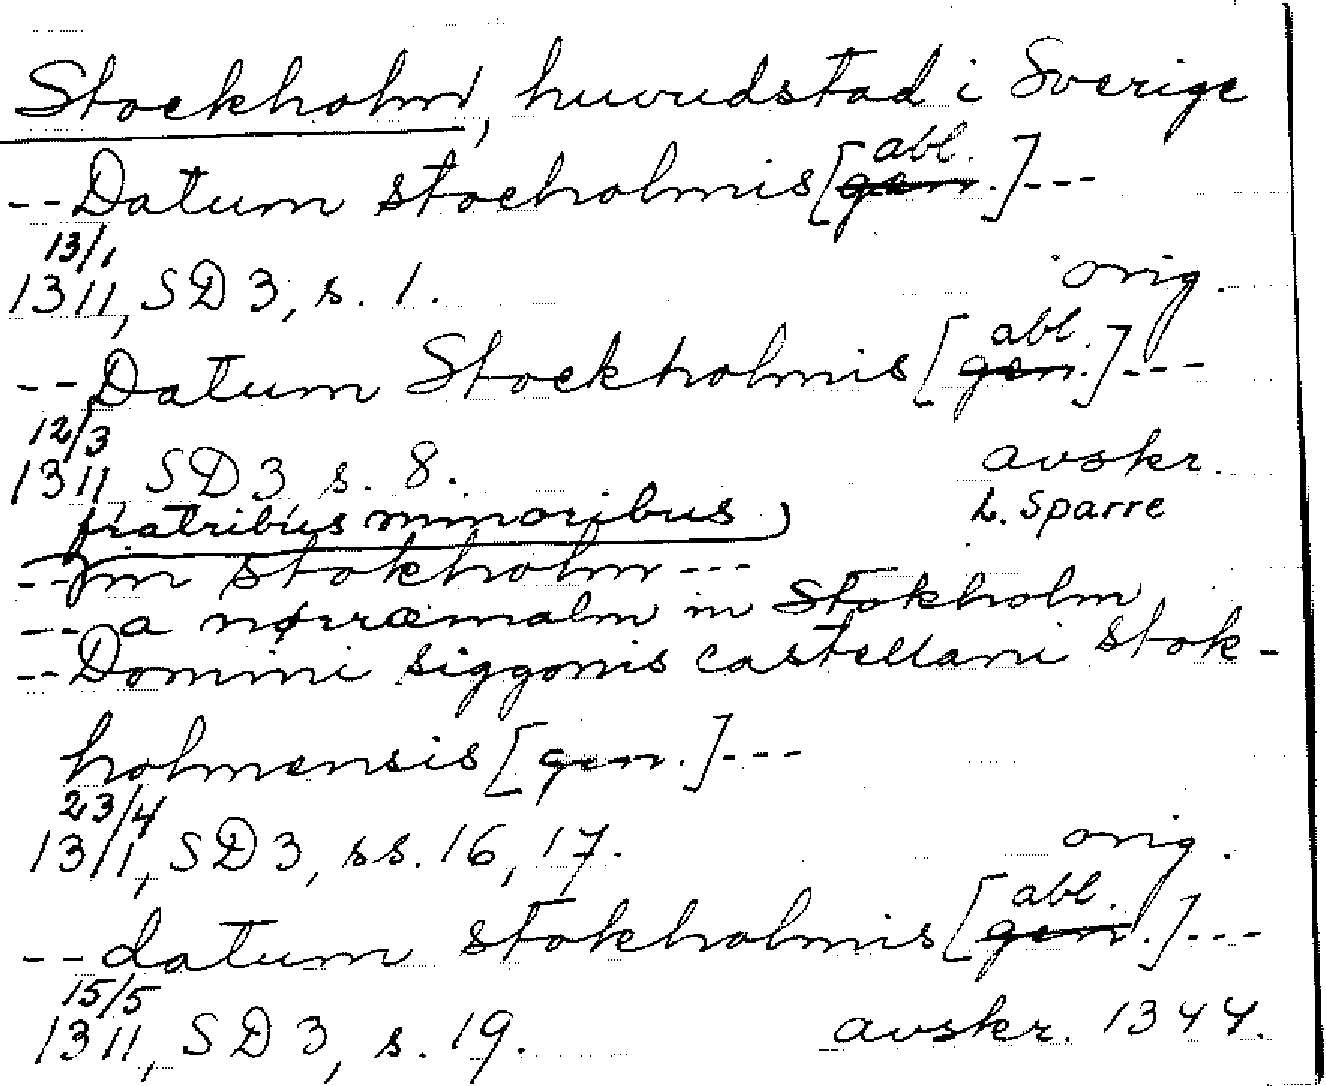 Stockholm, huvudstad i Sverige
abl.
--Datum stocholmis [gen.]---
13/1
1311, SD 3, s. 1. orig.
abl.
--Datum Stockholmis [gen.]---
12/3
1311, SD 3 s. 8. avskr.
fratribus minoribus L. Sparre
--jn stokholm---
--- a nørræmalm in Stokholm
--Domini siggonis castellani stok-
holmensis [gen.]---
23/4
1311, SD 3, ss. 16, 17. orig.
abl.
--datum stokholmis [gen.]---
15/5
1311, SD 3, s. 19. avskr. 1344.